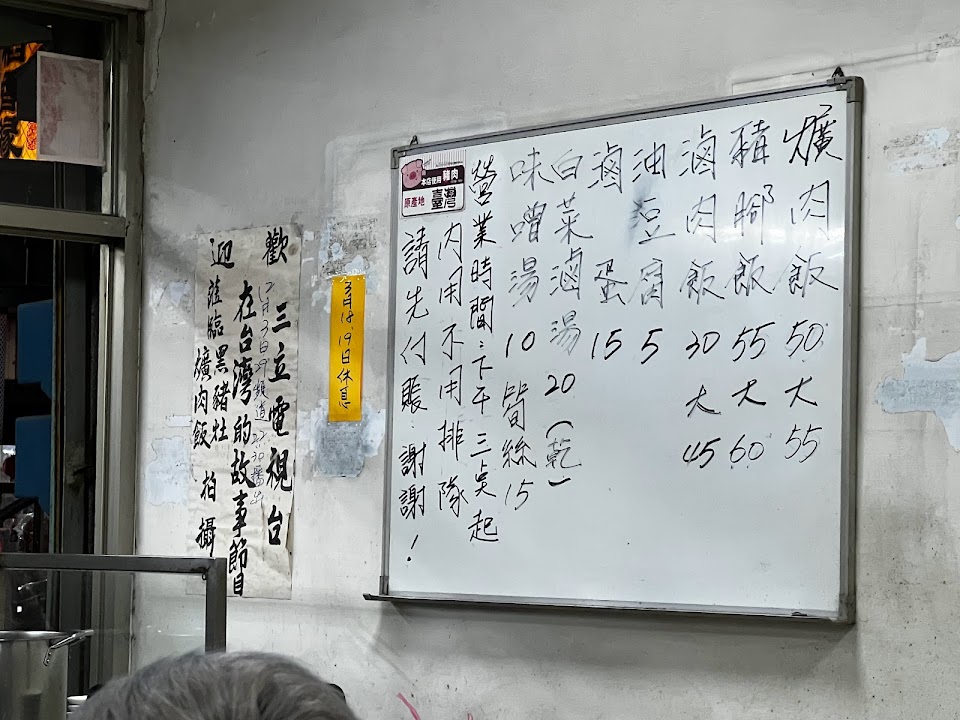 爌肉飯 50 大 55
豬腳飯 55 大 60
滷肉飯 30 大 45
油豆腐 5
滷蛋 15
白菜滷湯 20(乾)
味噌湯 10 筍絲 15
營業時間:下午三點起
內用不用排隊
請先付賬.謝謝!
本店使用豬肉
原產地 臺灣
3月18,19日休息
歡迎
三立電視台
在台灣的故事節目
蒞臨黑豬灶
爌肉飯 拍攝